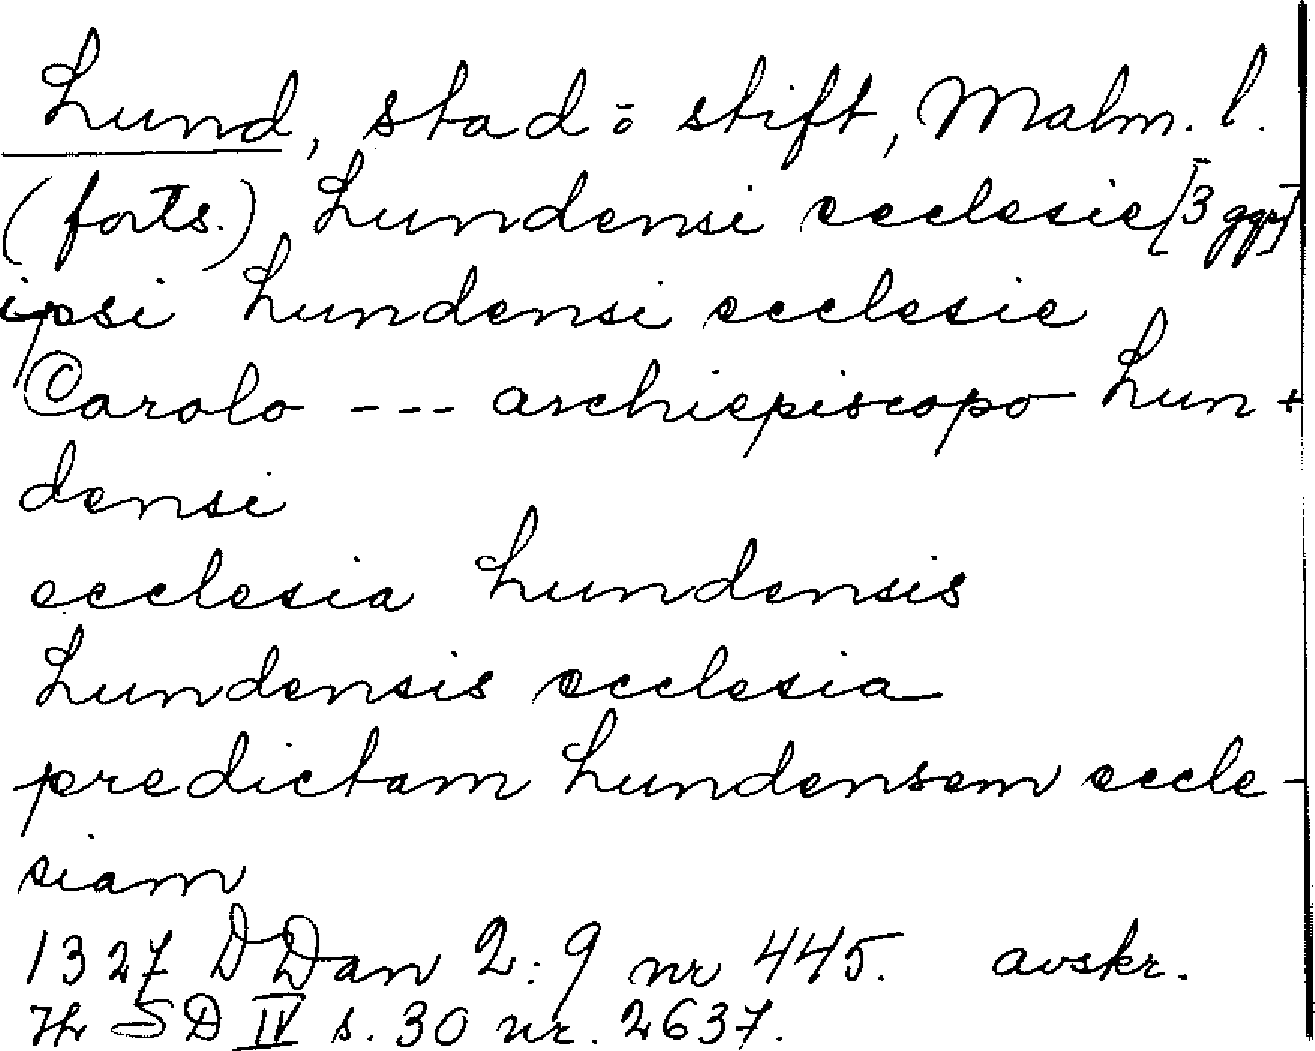 Lund, stad o stift, Malm. l.
(forts.) Lundensi ecclesie [3 ggr]
ipsi Lundensi ecclesie
Carolo --- archiepiscopo Lun-
densi
ecclesia Lundensis
Lundensis ecclesia
predictam Lundensem eccle-
siam
1327 DDan 2:9 nr 445. avskr.
SD IV s. 30 nr. 2637.